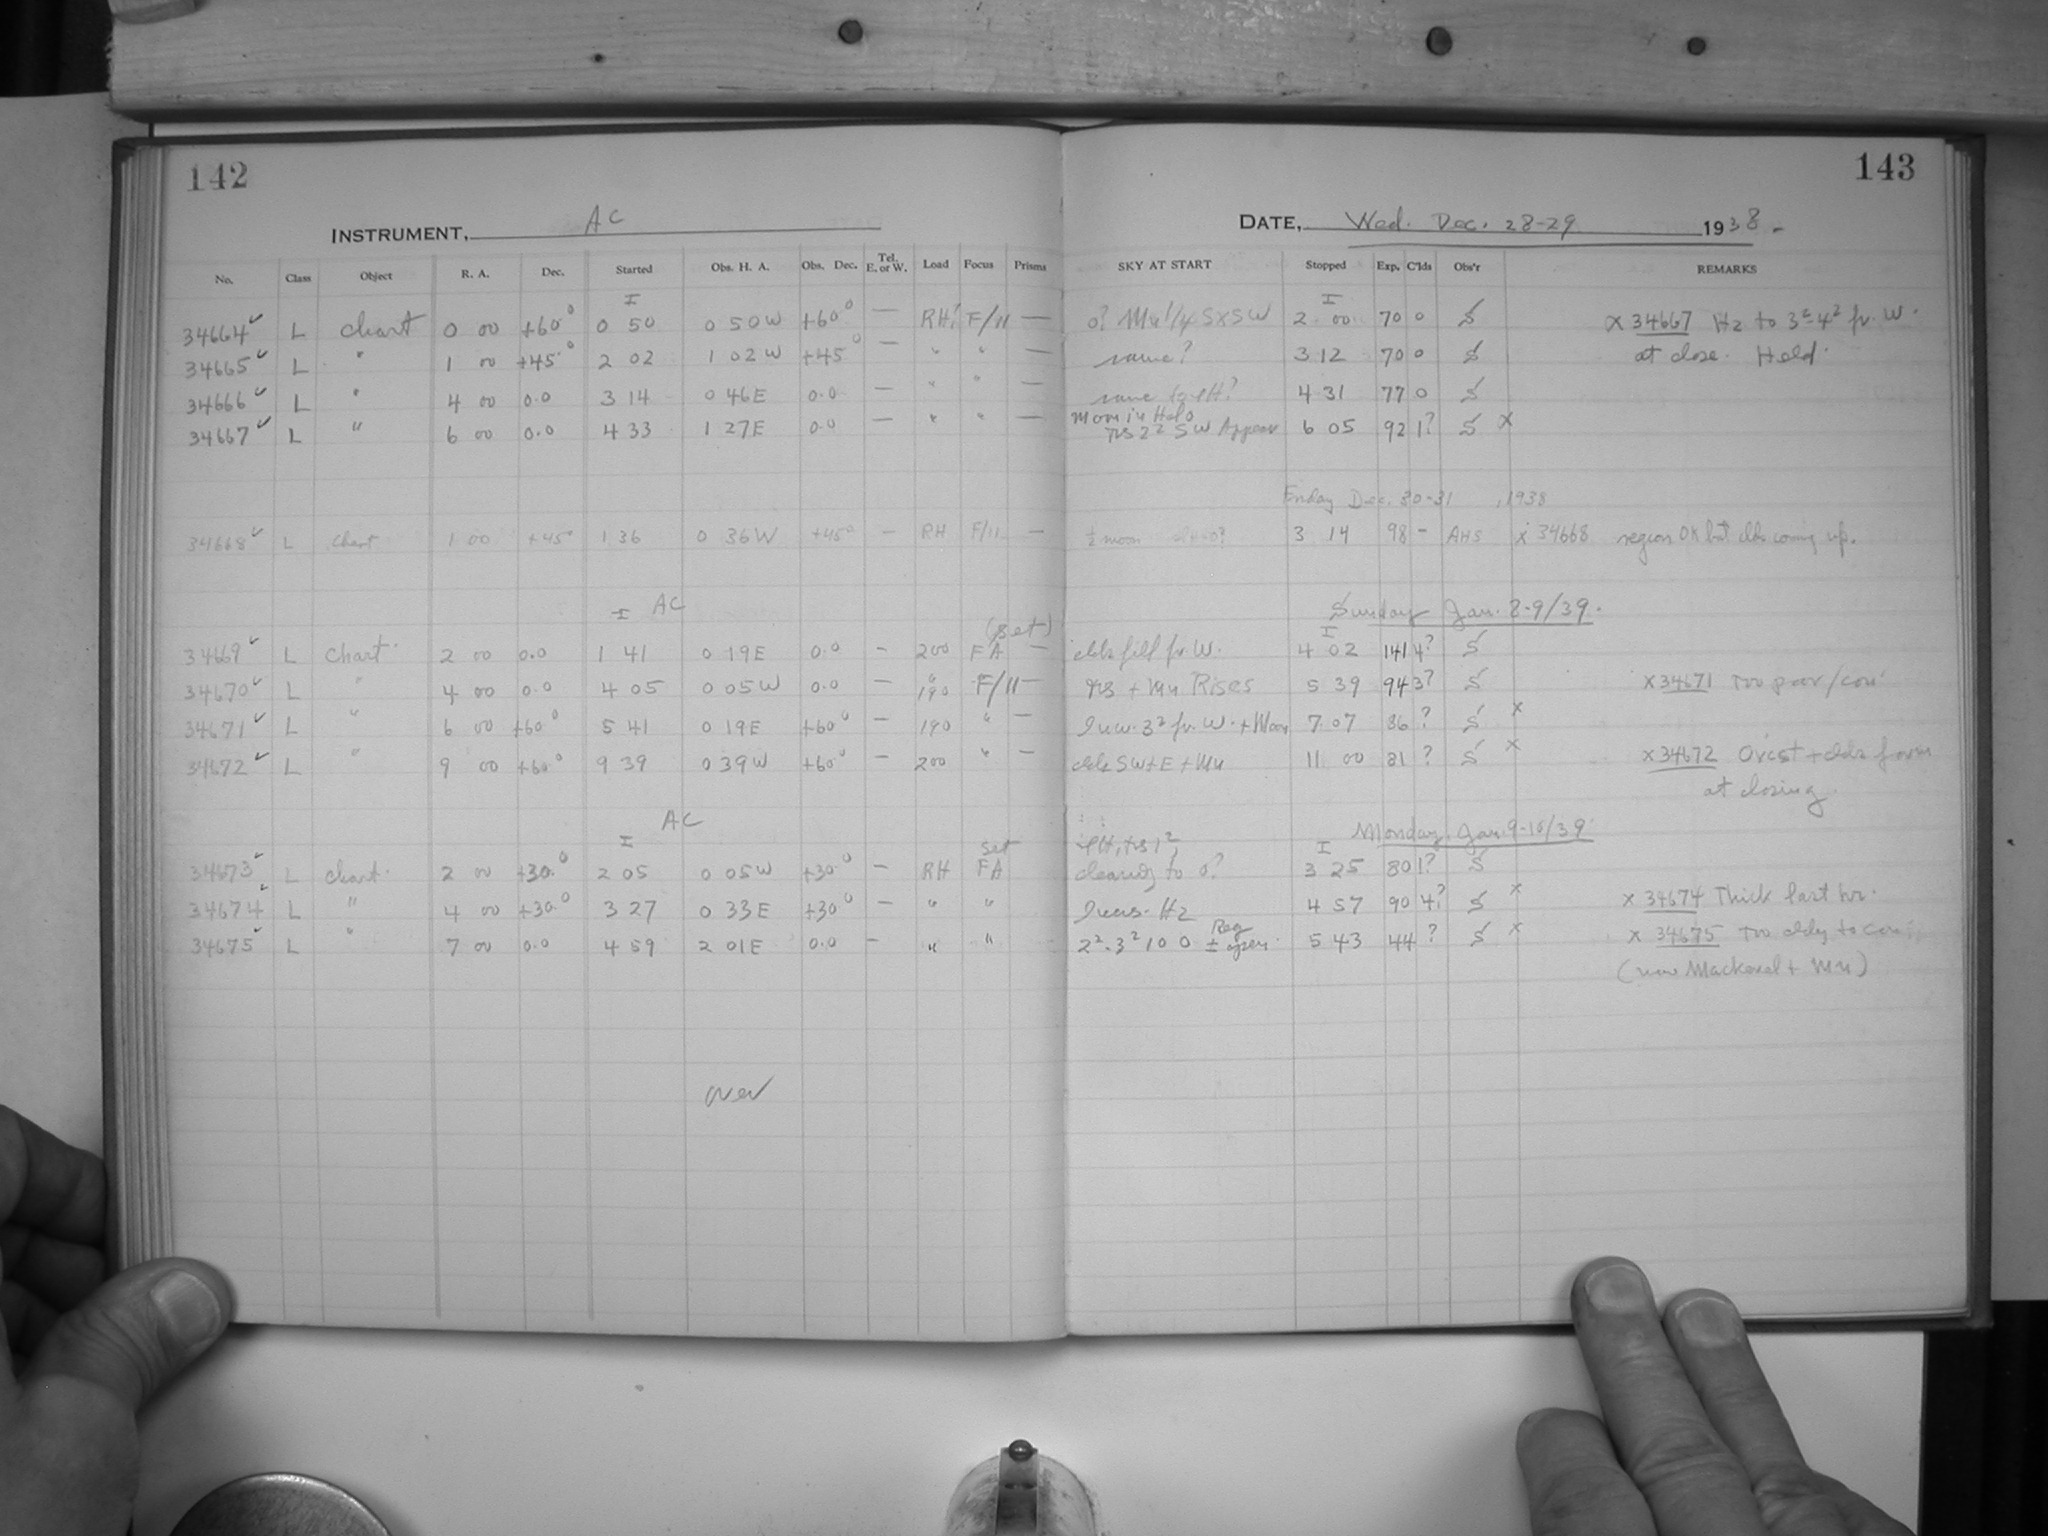 142
143
INSTRUMENT, AC
DATE, Wed. Dec. 28-29 1938.
No. Class Object R. A. Dec. Started Obs. H. A. Obs. Dec. Tel. E. or W. Load Focus Prisms SKY AT START Stopped Exp. C'lds Obs'r REMARKS
I I
34664 ✓ L chart 0 00 +60° 0 50 0 50W +60° — RH? F/11 — 0? Mn 1/4 S×SW 2 00 70 0 S × 34667 Hz to 3²-4² fr. W.
34665 ✓ L " 1 00 +45° 2 02 1 02W +45° — " " — same? 3 12 70 0 S at close. Held.
34666 ✓ L " 4 00 0.0 3 14 0 46E 0.0 — " " — same 4 31 77 0 S
34667 ✓ L " 6 00 0.0 4 33 1 27E 0.0 — " " — Moon in Halo
SW Appear 6 05 92 1? S ×
Friday Dec. 30-31, 1938
34668 ✓ L chart 1 00 +45° 1 36 0 36W +45° — RH F/11 — ½ moon 3 14 98 - AHS × 34668 region OK but clds coming up.
I AC Sunday Jan. 8-9/39.
(set) I
34669 ✓ L chart 2 00 0.0 1 41 0 19E 0.0 - 200 FA — clds fill fr. W. 4 02 141 4? S
34670 ✓ L " 4 00 0.0 4 05 0 05W 0.0 — 190 F/11 — + Mn Rises 5 39 94 3? S × 34671 Too poor/con'
34671 ✓ L " 6 00 +60° 5 41 0 19E +60° — 190 " — 3² fr. W. + Moon 7 07 86 ? S ×
34672 ✓ L " 9 00 +60° 9 39 0 39W +60° — 200 " — clds SW+E + Mn 11 00 81 ? S × × 34672 Ovcst + clds form
at closing.
I AC Monday. Jan. 9-10/39
set I
34673 ✓ L chart 2 00 +30° 2 05 0 05W +30° — RH FA clearing to 0? 3 25 80 1? S
34674 ✓ L " 4 00 +30° 3 27 0 33E +30° — " " Incrs. Hz 4 57 90 4? S × × 34674 Thick last hr.
34675 ✓ L " 7 00 0.0 4 59 2 01E 0.0 - " " 2²-3² 100 Reg ± open. 5 43 44 ? S × × 34675 Too cldy to con'
(now Mackerel + Mn)
over